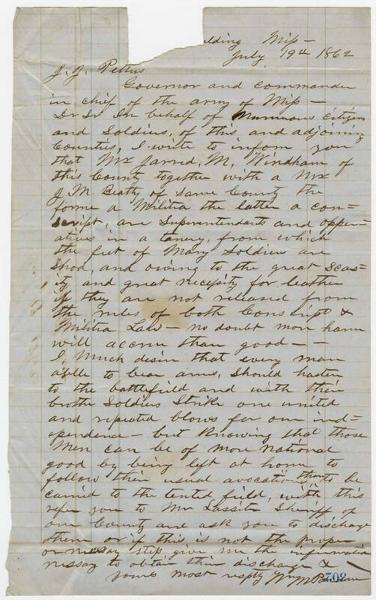 lding Miss -
July 19th 1862
J. J. Pettus
Governor and commander
in chief of the army of Miss -
Dr Sir In behalf of Numerous Citizens
and Soldiers, of this, and adjoining
Counties, I write to inform you
that Mr Jarred, M, Windham of
this County together with a Mr
J. M. Beaty of Same County the
forme a Militia the latter a con-
script, are Superintendants and opper-
atives in a tanery, from which
the feet of Many Soldiers are
Shod, and owing to the great Scas-
ity and great necessity for leather
if they are not released from
the rules of both Conscript &
Militia Law - no doubt more harm
will accrue than good -
I, Much desire that every man
able to bear arms, Should hasten
to the battlefield and with their
brother Soldiers Strike one united
and repeated blows for our ind-
ependence - but Knowing that those
Men can be of more National
good by being left at home to
follow their usual avocation than to be
carried to the tented field, with this
refer you to Mr Lassiter Sheriff of
our County and ask you to discharge
them or if this is not the proper
or necessay Step give me the information
nessay to obtain their discharge &
yours most resptly Wm M
702